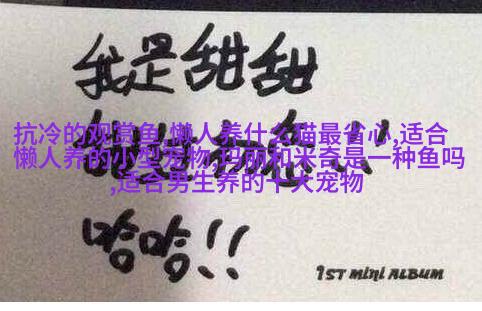 我是甜甜
抗冷的观赏鱼,懒人养什么猫最省心,适合
懒人养的小型宠物,玛丽和米奇是一种鱼吗
,适合男生养的十大宠物
哈哈!!
1ST MINI ALBUM